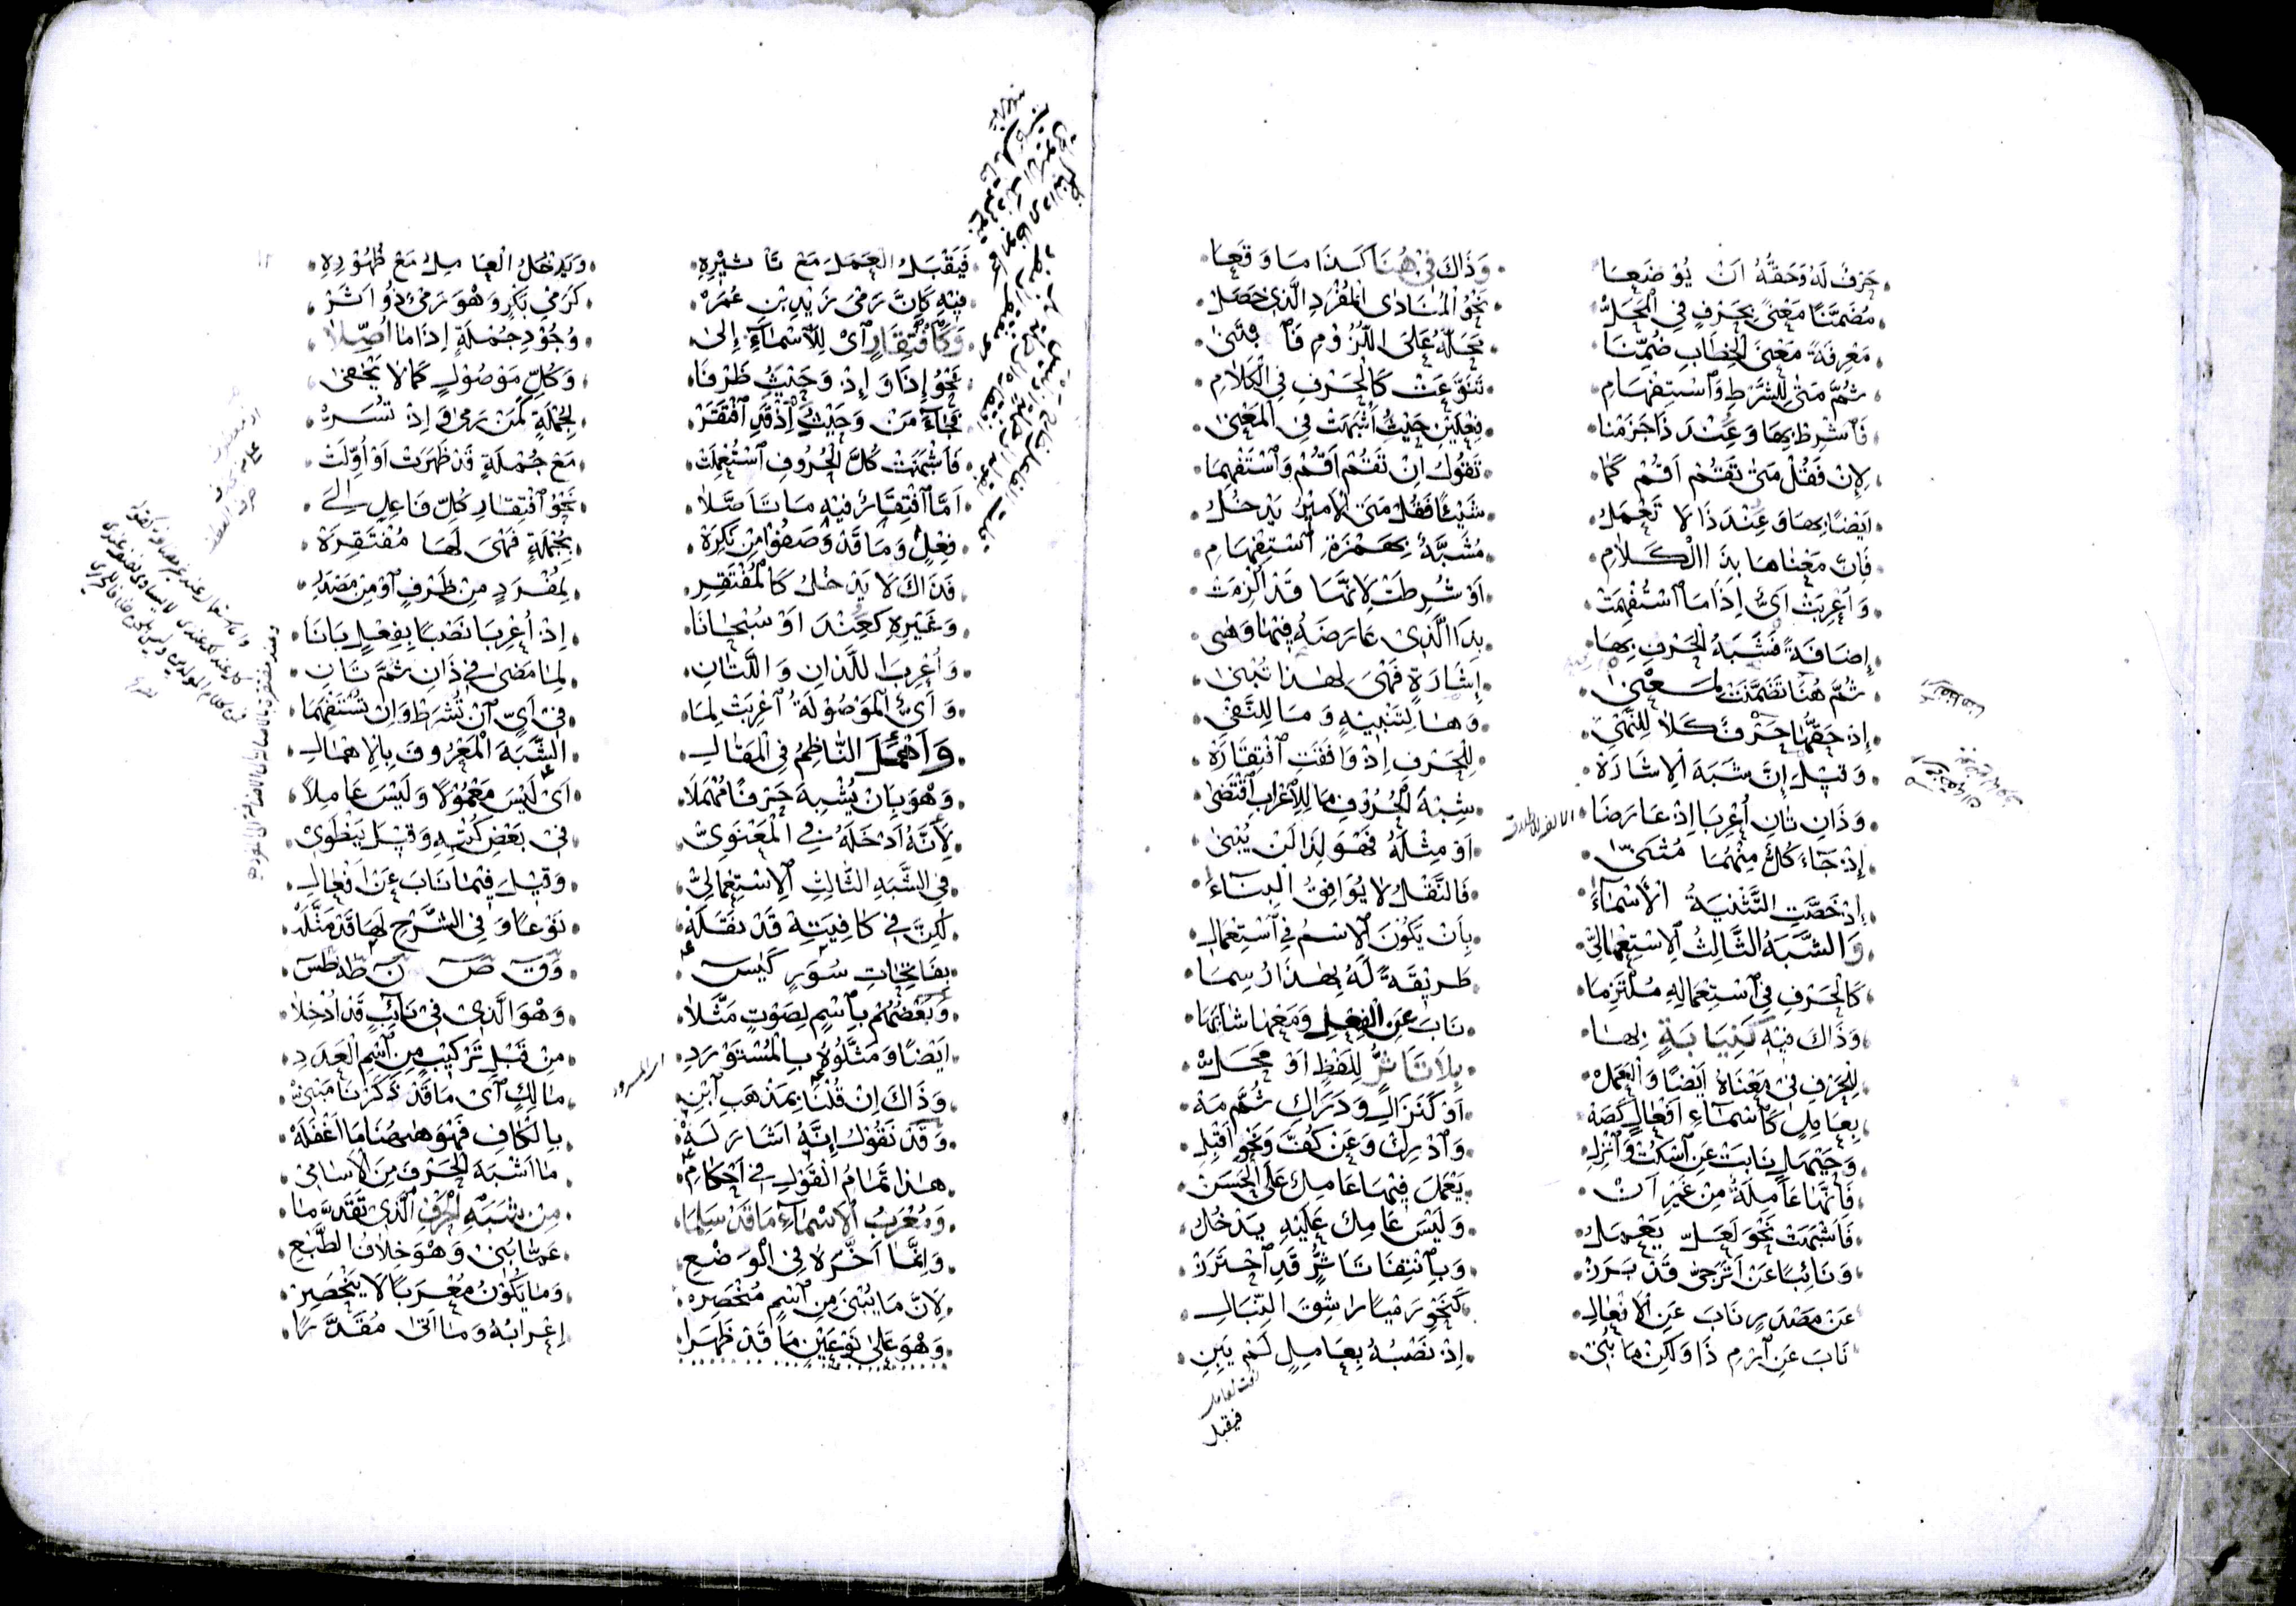 حَرْفٌ لَهُ وَحَقُّهُ اَنْ يُوْضَعَا وَذَاكَ فِيْ هُنَا كَذَا مَا وَقَعَا
مُضَمَّنًا مَعْنًى بِحَرْفٍ فِي الْمَحَلّْ نَحْوُ الْمُنَادٰى الْمُفْرَدِ الَّذِيْ حَصَلْ
مَعْرِفَةً مَعْنَى الْخِطَابِ ضُمِّنَا مَحَلَّهُ عَلَى اللُّزُوْمِ فَٱبْتَنٰى
ثُمَّ مَتٰى لِلشَّرْطِ وَٱسْتِفْهَامِ تَنَوَّعَتْ كَالْحَرْفِ فِي الْكَلَامِ
فَٱشْرِطْ بِهَا وَعِنْدَ ذَا جَزَمْنَا فِعْلَيْنِ حَيْثُ أَشْبَهَتْ فِي الْمَعْنٰى
لِإِنْ فَقُلْ مَتٰى تَقُمْ اَقُمْ كَمَا تَقُوْلُ اِنْ تَقُمْ اَقُمْ وَٱسْتَفْهِمَا
اَيْضًا بِهَا وَعِنْدَ ذَا لَا تَعْمَلُ شَيْئًا فَقُلْ مَتَى الْاَمِيْرُ يَدْخُلُ
فَاِنَّ مَعْنَاهَا بِذَا الْكَلَامِ مُشَبَّهٌ بِهَمْزَةِ ٱسْتِفْهَامِ
وَاُعْرِبَتْ اَيٌّ اِذَا مَا ٱسْتُفْهِمَتْ اَوْ شُرِطَتْ لِاَنَّهَا قَدْ اُلْزِمَتْ
إِضَافَةً فَشَبَهُ الْحَرْفِ بِهَا بِذَا الَّذِيْ عَارَضَهُ فِيْهَا وَهٰى
ثُمَّ هُنَا تَضَمَّنَتْ لِمَعْنٰى إِشَارَةٍ فَهْيَ لِهٰذَا تُبْنٰى
إِذْ حَقُّهَا حَرْفٌ كَلَا لِلنَّهْيِ وَهَا لِتَنْبِيْهٍ وَمَا لِلنَّفْيِ
وَقِيْلَ إِنَّ شَبَهَ الْاِشَارَةْ لِلْحَرْفِ اِذْ وَافَقَتِ ٱفْتِقَارَهْ
وَذَانِ تَانِ اُعْرِبَا اِذْ عَارَضَا شِبْهَ الْحُرُوْفِ مَا لِلْاِعْرَابِ ٱقْتَضٰى
الالف للاطلاق
إِذْ جَاءَ كُلٌّ مِنْهُمَا مُثَنّٰى اَوْ مِثْلَهُ فَهْوَ لِذَا لَنْ يُبْنٰى
اِذْ خَصَّتِ التَّثْنِيَةُ الْاَسْمَاءَ فَالنَّقْلُ لَا يُوَافِقُ الْبِنَاءَ
وَالشَّبَهُ الثَّالِثُ الْاِسْتِعْمَالِيّْ بِاَنْ يَكُوْنَ الْاِسْمُ فِي ٱسْتِعْمَالِ
كَالْحَرْفِ فِي ٱسْتِعْمَالِهِ مُلْتَزِمَا طَرِيْقَةً لَهُ بِهٰذَا رُسِمَا
وَذَاكَ فِيْهِ كَنِيَابَةٍ بِهَا نَابَ عَنِ الْفِعْلِ وَمَعْهَا شَابَهَا
لِلْحَرْفِ فِيْ مَعْنَاهُ اَيْضًا وَالْعَمَلْ بِلَا تَاَثُّرٍ لِلَفْظٍ اَوْ مَحَلّْ
بِعَامِلٍ كَاَسْمَاءِ اَفْعَالٍ كَصَهْ اَوْ كَنَزَالِ وَدَرَاكِ ثُمَّ مَهْ
وَحَيَّهَلْ نَابَتْ عَنِ ٱسْكُتْ وَٱنْزِلِ وَٱدْرِكْ وَعَنْ كُفَّ وَنَحْوِ اَقْبِلِ
فَاِنَّهَا عَامِلَةٌ مِنْ غَيْرِ اَنْ يَعْمَلَ فِيْهَا عَامِلٌ عَلَى الْحَسَنْ
فَاَشْبَهَتْ نَحْوَ لَعَلَّ يَعْمَلُ وَلَيْسَ عَامِلٌ عَلَيْهِ يَدْخُلُ
وَنَائِبًا عَنْ اَتَرَجّٰى قَدْ بَرَزْ وَبِٱنْتِفَا تَاَثُّرٍ قَدِ ٱحْتَرَزْ
عَنْ مَصْدَرٍ نَابَ عَنِ الْاَفْعَالِ كَنَحْوِ رَمْيًا رَاشِقَ النِّبَالِ
نَابَ عَنِ ٱرْمِ ذَا وَلٰكِنْ مَا بُنِيْ اِذْ نَصْبُهُ بِعَامِلٍ لَمْ يَبِنِ
نعت لعامل
فيقبل
فَيَقْبَلُ الْعَمَلَ مَعْ تَاْثِيْرِهِ وَيَدْخُلُ الْعَامِلُ مَعْ ظُهُوْرِهِ
فِيْهِ كَاِنَّ رَمْيَ زَيْدِ بْنِ عُمَرْ كَرَمْيِ بَكْرٍ وَهْوَ رَمْيٌ ذُوْ اَثَرْ
وَكَٱفْتِقَارٍ اَيْ لِلْاَسْمَاءِ إِلٰى وُجُوْدِ جُمْلَةٍ إِذَا مَا اُصِّلَا
نَحْوُ إِذَا وَإِذْ وَحَيْثُ ظَرْفَا وَكُلِّ مَوْصُوْلٍ كَمَا لَا يَخْفٰى
فَجَاءَ مَنْ وَحَيْثُ إِذْ قَدِ ٱفْتَقَرْ لِجُمْلَةٍ كَمَنْ رَمٰى وَإِذْ تُسَرّْ
فَاَشْبَهَتْ كُلَّ الْحُرُوْفِ ٱسْتُعْمِلَتْ مَعْ جُمْلَةٍ قَدْ ظَهَرَتْ اَوْ اُوِّلَتْ
اَمَّا ٱفْتِقَارٌ فِيْهِ مَا تَاَصَّلَا نَحْوُ ٱفْتِقَارِ كُلِّ فَاعِلٍ إِلٰى
فِعْلٍ وَمَا قَدْ وَصَفُوْا مِنْ نَكِرَةْ بِجُمْلَةٍ فَهْيَ لَهَا مُفْتَقِرَةْ
فَذَاكَ لَا يَدْخُلُ كَالْمُفْتَقِرِ لِمُفْرَدٍ مِنْ ظَرْفٍ اَوْ مِنْ مَصْدَرِ
وَغَيْرِهِ كَعِنْدَ اَوْ سُبْحَانَا اِذْ اُعْرِبَا نَصْبًا بِفِعْلٍ بَانَا
وَاُعْرِبَا اللَّذَانِ وَاللَّتَانِ لِمَا مَضٰى فِيْ ذَانِ ثُمَّ تَانِ
وَاَيٌّ الْمَوْصُوْلَةُ اُعْرِبَتْ لِمَا فِيْ اَيٍّ اَنْ تُشْرَطْ وَاِنْ تُسْتَفْهَمَا
وَاَهْمَلَ النَّاظِمُ فِي الْمَقَالِ الشَّبَهَ الْمَعْرُوْفَ بِالْاِهْمَالِ
وَهْوَ بِاَنْ يُشْبِهَ حَرْفًا مُهْمَلَا اَيْ لَيْسَ مَعْمُوْلًا وَلَيْسَ عَامِلَا
لِاَنَّهُ اَدْخَلَهُ فِي الْمَعْنَوِيّْ فِيْ بَعْضِ كُتْبِهِ وَقِيْلَ يَنْطَوِيْ
فِي الشَّبَهِ الثَّالِثِ الْاِسْتِعْمَالِيّْ وَقِيْلَ فِيْمَا نَابَ عَنْ اَفْعَالِ
لٰكِنَّ فِيْ كَافِيَتِهْ قَدْ نَقَلَهْ نَوْعًا وَفِي الشَّرْحِ لَهَا قَدْ مَثَّلَهْ
بِفَاتِحَاتِ سُوَرٍ كَيٰسٓ وَقٓ صٓ نٓ طٰهٰ طٰسٓ
وَبَعْضُهُمْ بِٱسْمٍ لِصَوْتٍ مَثَّلَا وَهْوَ الَّذِيْ فِيْ نَائِبٍ قَدْ اُدْخِلَا
اَيْضًا وَمَثَّلُوْهُ بِالْمُسْتَوْرَدِ مِنْ قَبْلِ تَرْكِيْبٍ مِنِ ٱسْمِ الْعَدَدِ
وَذَاكَ اِنْ قُلْنَا بِمَذْهَبِ ٱبْنِ مَالِكٍ اَيْ مَا قَدْ ذَكَرْنَا مَبْنِيْ
وَقَدْ نَقُوْلُ إِنَّهُ اَشَارَ لَهْ بِالْكَافِ فَهْوَ هٰهُنَا مَا اَغْفَلَهْ
هٰذَا تَمَامُ الْقَوْلِ فِيْ اَحْكَامِ مَا اَشْبَهَ الْحَرْفَ مِنَ الْاَسَامِيْ
وَمُعْرَبُ الْاَسْمَاءِ مَا قَدْ سَلِمَا مِنْ شَبَهِ الْحَرْفِ الَّذِيْ تَقَدَّمَا
وَاِنَّمَا اَخَّرَهُ فِي الْوَضْعِ عَمَّا بُنِيْ وَهْوَ خِلَافُ الطَّبْعِ
لِاَنَّ مَا يُبْنٰى مِنِ ٱسْمٍ مُنْحَصِرْ وَمَا يَكُوْنُ مُعْرَبًا لَا يَنْحَصِرْ
وَهْوَ عَلٰى نَوْعَيْنِ مَا قَدْ ظَهَرَا اِعْرَابُهُ وَمَا اَتٰى مُقَدَّرَا